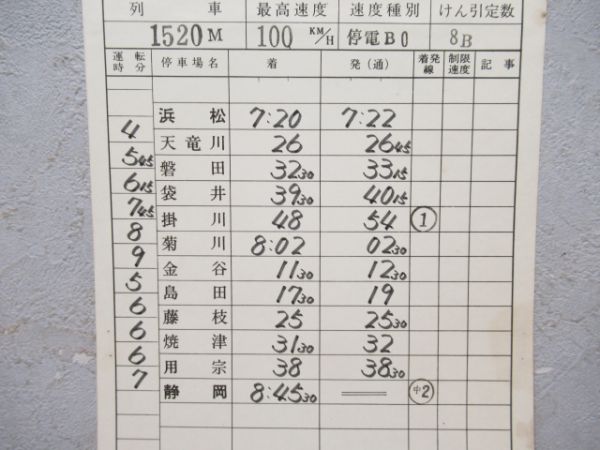 列 車 最高速度 速度種別 けん引定数
1520M 100 KM/H 停電B0 8B
運転時分 停車場名 着 発(通) 着発線 制限速度 記事
浜松 7:20 7:22
4
天竜川 26 26 45
5 45
磐田 32 30 33 15
6 15
袋井 39 30 40 15
7 45
掛川 48 54 ①
8
菊川 8:02 02 30
9
金谷 11 30 12 30
5
島田 17 30 19
6
藤枝 25 25 30
6
焼津 31 30 32
6
用宗 38 38 30
7
静岡 8:45 30 == 中2